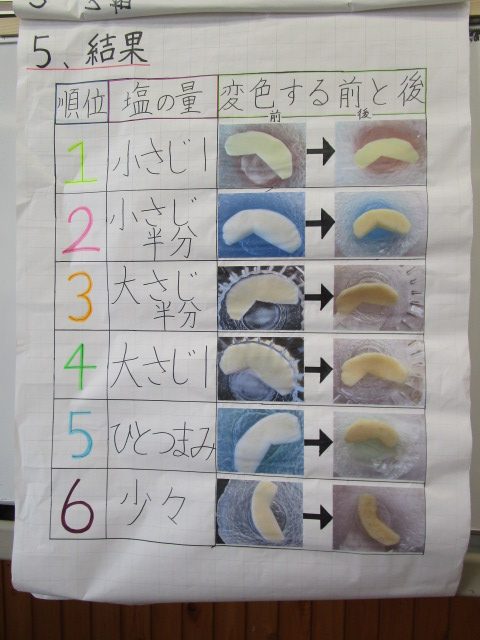 5、結果
順位 塩の量 変色する前と後
前 後
1 小さじ1
2 小さじ
半分
3 大さじ
半分
4 大さじ1
5 ひとつまみ
6 少々